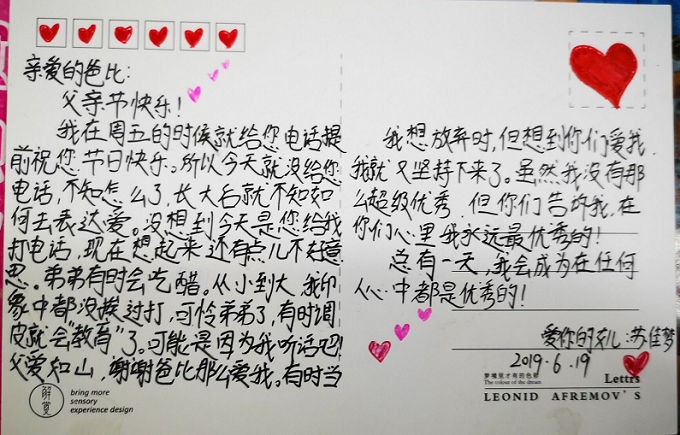 亲爱的爸比:
父亲节快乐!
我在周五的时候就给您电话提
前祝您节日快乐。所以今天就没给您
电话,不知怎么了,长大后就不知如
何去表达爱。没想到今天是您给我
打电话,现在想起来还有点儿不好意
思。弟弟有时会吃醋。从小到大,我印
象中都没挨过打,可怜弟弟了,有时调
皮就会“教育”了。可能是因为我听话吧!
父爱如山,谢谢爸比那么爱我。有时当
我想放弃时,但想到你们爱我
我就又坚持下来了。虽然我没有那
么超级优秀,但你们告诉我,在
你们心里我永远最优秀的!
总有一天,我会成为在任何
人心中都是优秀的!
爱你的女儿:苏佳梦
2019.6.19
bring more
sensory
experience design
The colour of the dream
Lettrs
LEONID AFREMOV'S